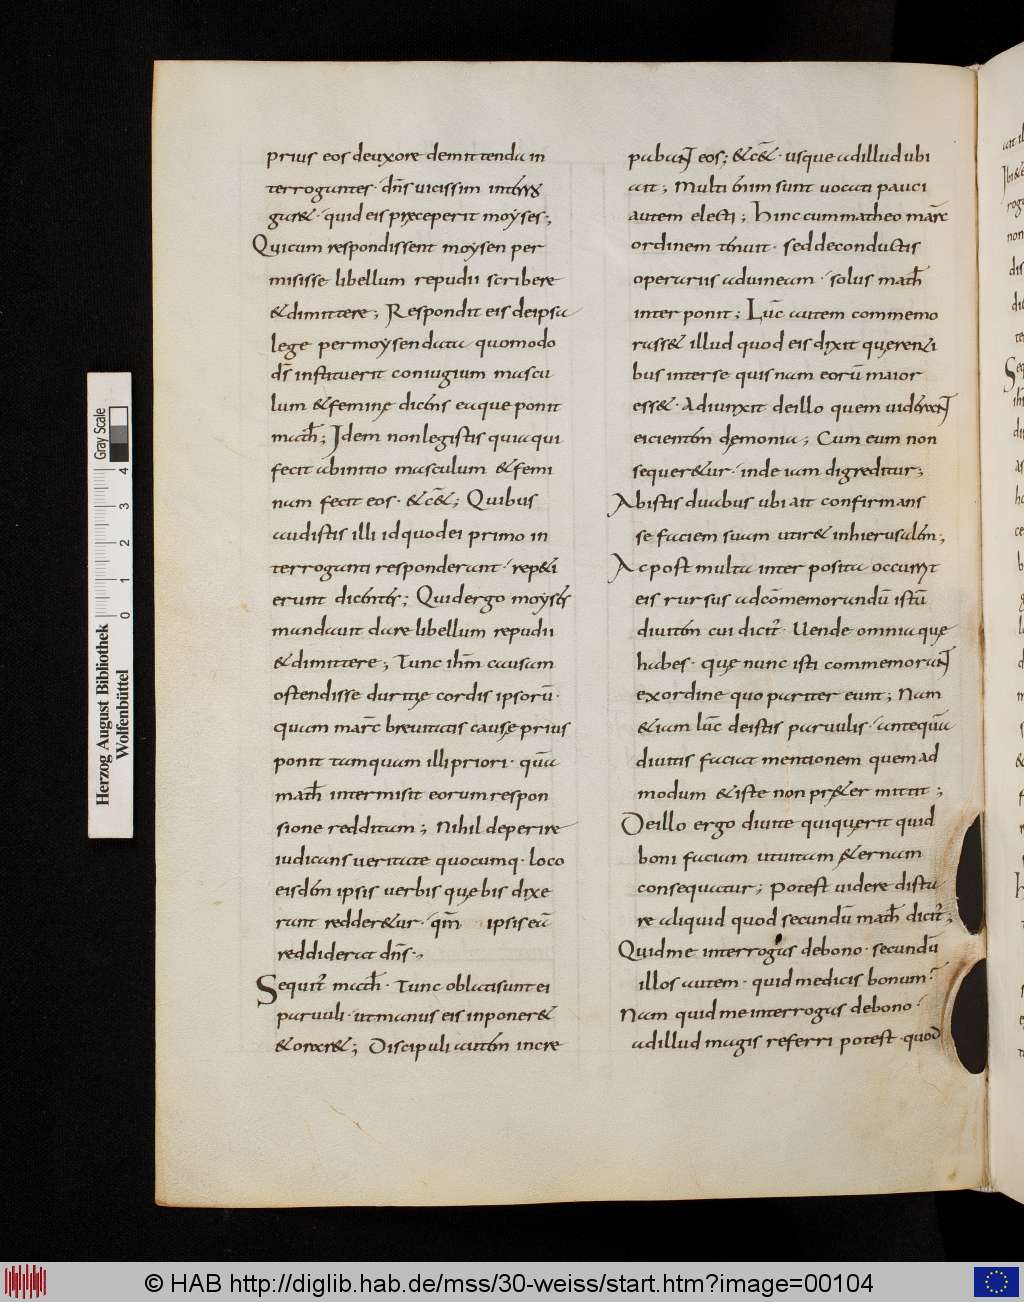 prius eos deuxore demittenda in
terrogantes· dn̄s uicissim interro
gar&· quid eis pręceperit moẏses·,
Quicum respondissent moẏsen per
misisse libellum repudii scribere
&dimittere; Respondit eis deipsa
lege permoẏsendata quomodo
dī instituerit coniugium mascu
lum &feminę dicens eaque ponit
math̄; Idem nonlegistis quiaqui
fecit abinitio masculum &femi
nam fecit eos· &c̄&; Quibus
auditis illi idquodei primo in
terroganti responderant· rep&i
erunt dicentes; Quidergo moẏses
mandauit dare libellum repudii
&dimittere; Tunc ihm̄ causam
ostendisse duritię cordis ipsorū·
quam marc̄ breuitatis causę prius
ponit tamquam illipriori· quā
math̄ intermisit eorumrespon
sione redditam; Nihil deperire
iudicans ueritate quocumq· loco
eisdem ipsis uerbis quębis dixe
rant redder&ur· qm̄ ipsis eā
reddiderat dn̄s·,
Sequit̄ math̄· Tunc oblatisunt ei
paruuli· utmanus eis inponer&
&orar&; Discipuli autem incre
pabant eos; &c̄&· usque adillud ubi
ait; Multi enim sunt uocati pauci
autem electi; Hinc cummatheo marc̄
ordinem tenuit· seddeconductis
operariis aduineam· solus math̄
inter ponit; Luc̄ autem commemo
rass& illud quod eis dixit quęrenti
bus interse quisnam eorū maior
ess&· Adiunxit deillo quem uiderant
eicientem dęmonia; Cum eum non
sequer&ur· inde iam digreditur;
Abistis duabus ubi ait confirmans
se faciem suam utir& inhierusalem;
Ac post multa inter posita occurrit
eis rursus adcōmemorandū istū
diuitem cui dicit̄· Uende omnia quę
habes· quę nunc isti commemorant
exordine quo pariter eunt; Nam
&iam luc̄ deistis paruulis· antequā
diuitis faciat mentionem quemad
modum &iste non pręter mittit;
Deillo ergo diuite quiquęrit quid
boni faciam utuitam ęternam
consequatur; Potest uidere dista
re aliquid quod secundū math̄ dicit̄;
Quidme interrogas debono· secundū
illos autem· quid medicis bonum?
Nam quid me interrogas debono·
adillud magis referri potest· quod
Herzog August Bibliothek
Wolfenbüttel
0 1 2 3 4
Gray Scale
© HAB http://diglib.hab.de/mss/30-weiss/start.htm?image=00104